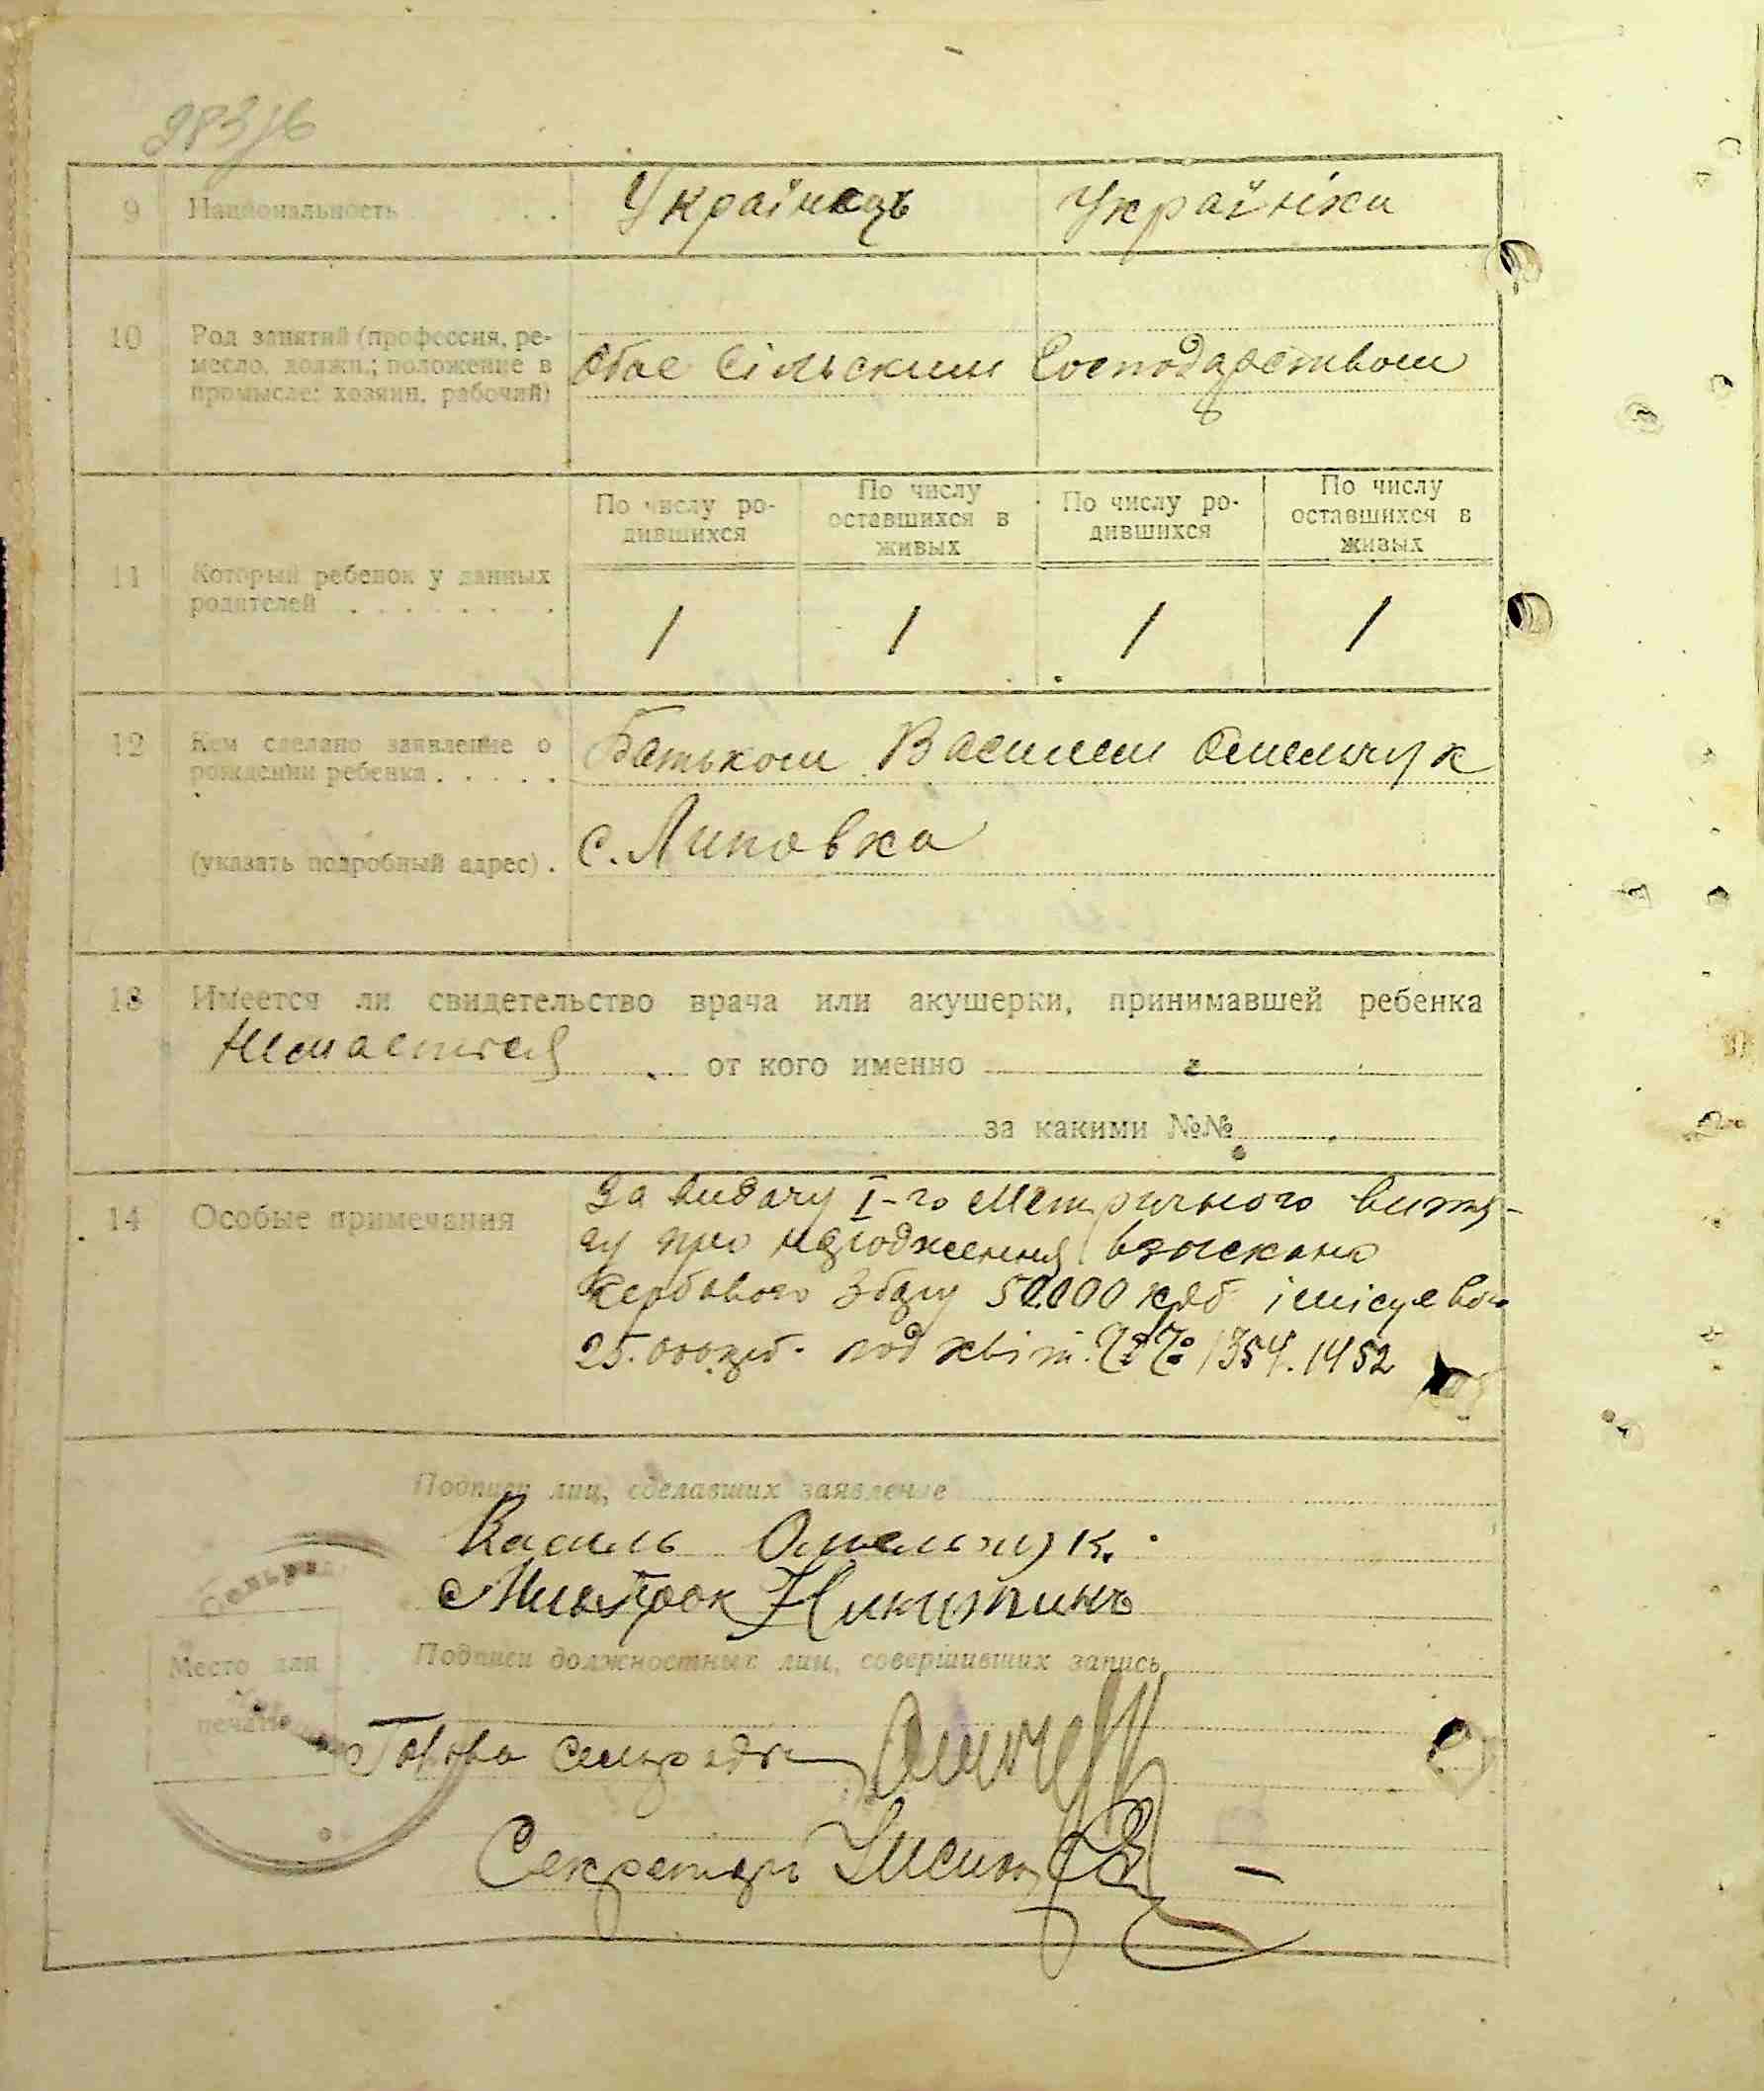 283/б
9 Национальность . . Українець Українка
10 Род занятий (профессия, ре-
месло, должн.; положение в
промысле: хозяин, рабочий)
Обоє Сільским Господарством
По числу ро-
дившихся
По числу
оставшихся в
живых
По числу ро-
дившихся
По числу
оставшихся в
живых
11 Который ребенок у данных
родителей . . . . . . .
1 1 1 1
12 Кем сделано заявление о
рождении ребенка . . . . .
Батьком Василем Омельчук
(указать подробный адрес) . с. Липовка
13 Имеется ли свидетельство врача или акушерки, принимавшей ребенка
от кого именно
за какими №№
14 Особые примечания
За видачу I-го Метричного витя-
гу про народження взыскано
Гербового Збору 50.000 карб і місцевого
25.000 карб. под квіт. №№ 1354. 1452
Подписи лиц, сделавших заявление
Василь Омельчук.
Подписи должностных лиц, совершивших запись
Место для
печати
Голова сельради
Секретарь